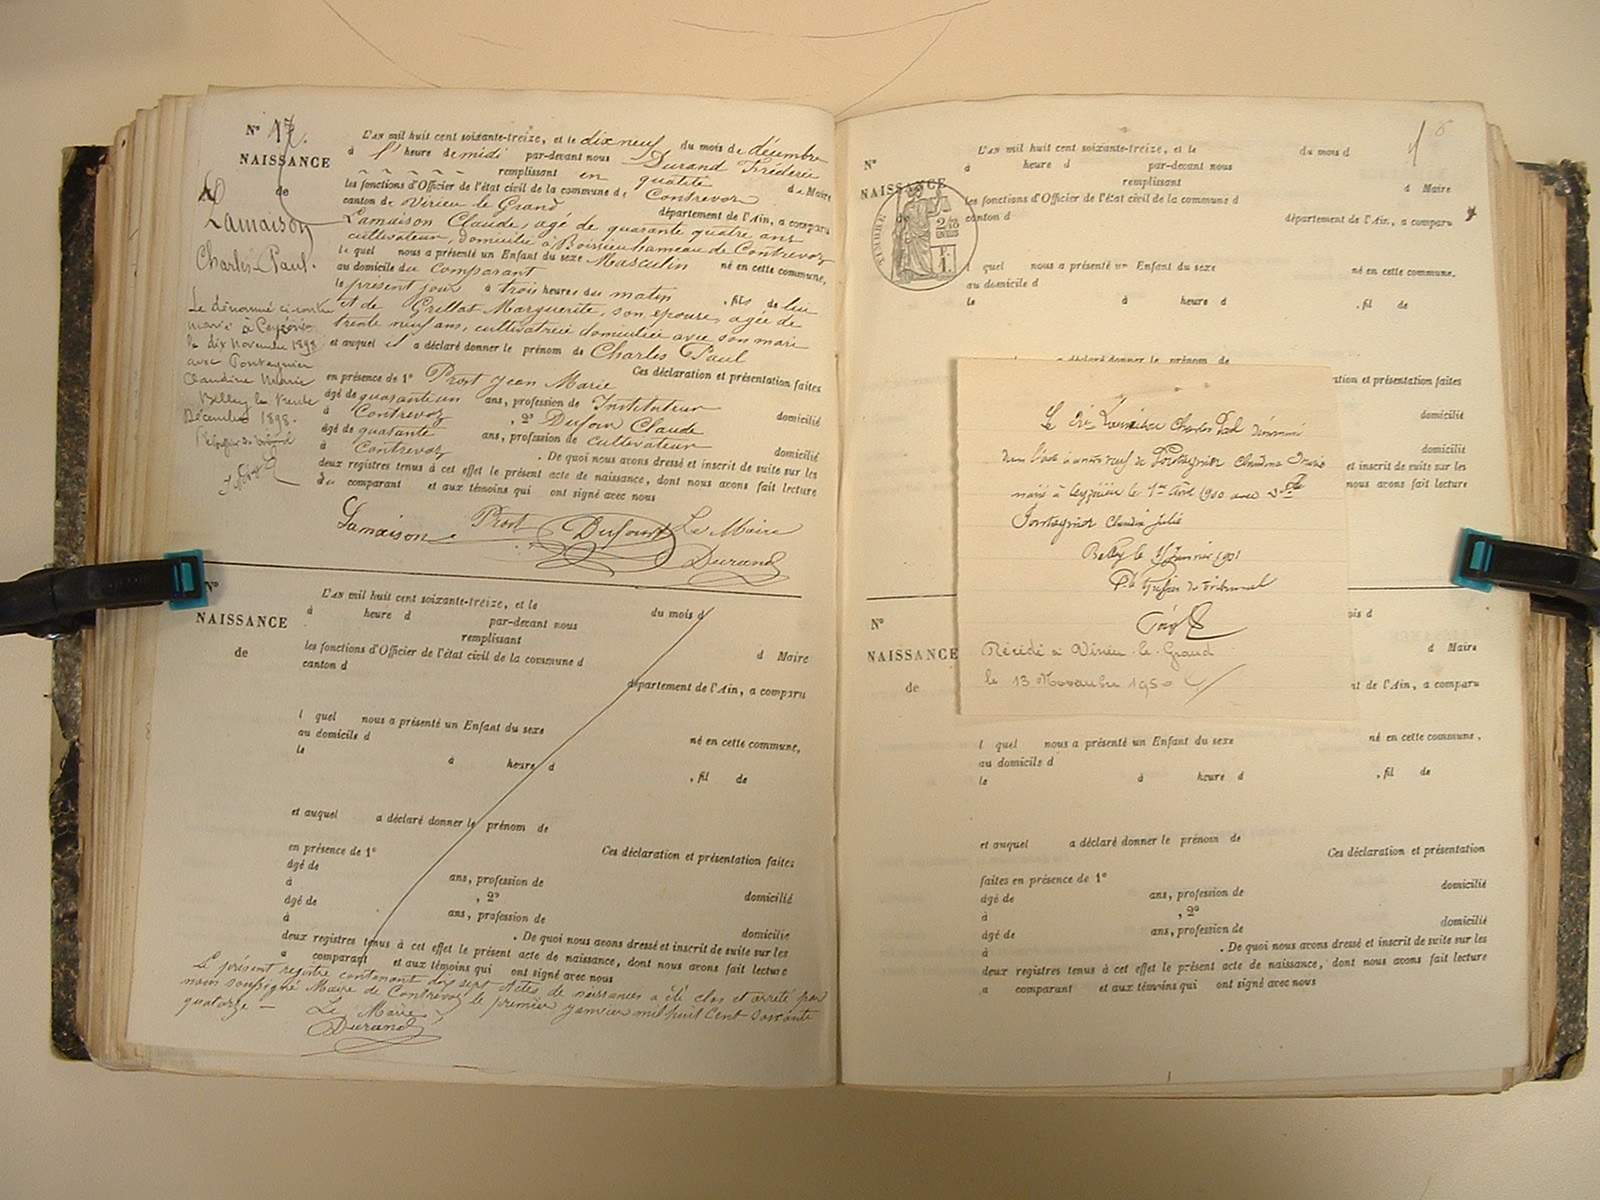 N° 17.
NAISSANCE
de
Lamaison
Charles Paul.
Le dénommé ci-contre
marié à Ceyzérieu
le dix Novembre 1898
avec Pontagnier
Claudine Marie
Belley le trente
Décembre 1898.
L'AN mil huit cent soixante-treize, et le dix neuf du mois de décembre
à l' heure de midi par-devant nous Durand Frédéric
remplissant en qualité de Maire
les fonctions d'Officier de l'état civil de la commune de Contrevoz
canton de Virieu le Grand département de l'Ain, a comparu
Lamaison Claude, agé de quarante quatre ans
cultivateur, domicilié à Boissieu hameau de Contrevoz
lequel nous a présenté un Enfant du sexe Masculin né en cette commune,
au domicile du comparant
le présent jour à trois heures du matin , fils de lui
et de Grillat Marguerite, son épouse, agée de
trente neuf ans, cultivatrice domiciliée avec son mari
et auquel il a déclaré donner le prénom de Charles Paul
Ces déclaration et présentation faites
en présence de 1° Prost Jean Marie
âgé de quarante un ans, profession de Instituteur domicilié
à Contrevoz , 2° Dufour Claude
âgé de quarante ans, profession de cultivateur domicilié
à Contrevoz . De quoi nous avons dressé et inscrit de suite sur les
deux registres tenus à cet effet le présent acte de naissance, dont nous avons fait lecture
au comparant et aux témoins qui ont signé avec nous
Lamaison Prost Dufour Le Maire
Durand
N°
NAISSANCE
de
L'AN mil huit cent soixante-treize, et le du mois d
à heure d par-devant nous
remplissant
les fonctions d'Officier de l'état civil de la commune d d Maire
canton d
département de l'Ain, a comparu
l quel nous a présenté un Enfant du sexe
au domicile d né en cette commune,
le à heure d , fil de
et auquel a déclaré donner le prénom de
Ces déclaration et présentation faites
en présence de 1°
âgé de ans, profession de
à , 2° domicilié
âgé de ans, profession de
à domicilié
. De quoi nous avons dressé et inscrit de suite sur les
deux registres tenus à cet effet le présent acte de naissance, dont nous avons fait lecture
a comparant et aux témoins qui ont signé avec nous
Le présent registre contenant dix sept actes de naissances a été clos et arrêté par
nous soussigné Maire de Contrevoz le premier janvier mil huit cent soixante
quatorze — Le Maire
Durand
N°
NAISSANCE
TIMBRE
L'AN mil huit cent soixante-treize, et le du mois d
à heure d par-devant nous
remplissant
d Maire
les fonctions d'Officier de l'état civil de la commune d
canton d département de l'Ain, a comparu
l quel nous a présenté un Enfant du sexe né en cette commune,
au domicile d
le à heure d , fil de
a déclaré donner le prénom de
ation et présentation faites
domicilié
domicilié
et inscrit de suite sur les
nous avons fait lecture
Le Lamaison Charles Paul dénommé
dans l'acte Pontagnier Claudine Marie
marié à Ceyzérieu le 1er Avril 1900 avec
Pontagnier Claudine Julie
Belley le Janvier 1901
Greffier du Tribunal
Décédé à Virieu-le-Grand
le 13 Novembre 1950
N°
NAISSANCE
de
ois d
d Maire
nt de l'Ain, a comparu
l quel nous a présenté un Enfant du sexe né en cette commune,
au domicile d
le à heure d , fil de
et auquel a déclaré donner le prénom de
Ces déclaration et présentation
faites en présence de 1°
âgé de ans, profession de domicilié
à , 2°
âgé de ans, profession de domicilié
à . De quoi nous avons dressé et inscrit de suite sur les
deux registres tenus à cet effet le présent acte de naissance, dont nous avons fait lecture
a comparant et aux témoins qui ont signé avec nous